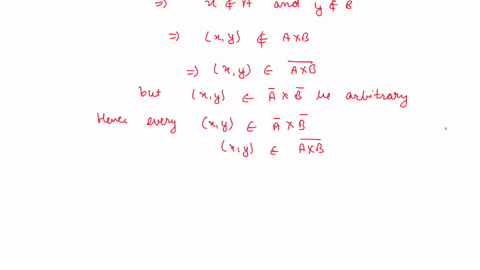 ⇒ x ∉ A and y ∉ B
⇒ (x,y) ∉ A×B
⇒ (x,y) ∈ \overline{A×B}
but (x,y) ∈ \bar{A} × \bar{B} be arbitrary
Hence every (x,y) ∈ \bar{A} × \bar{B}
(x,y) ∈ \overline{A×B}